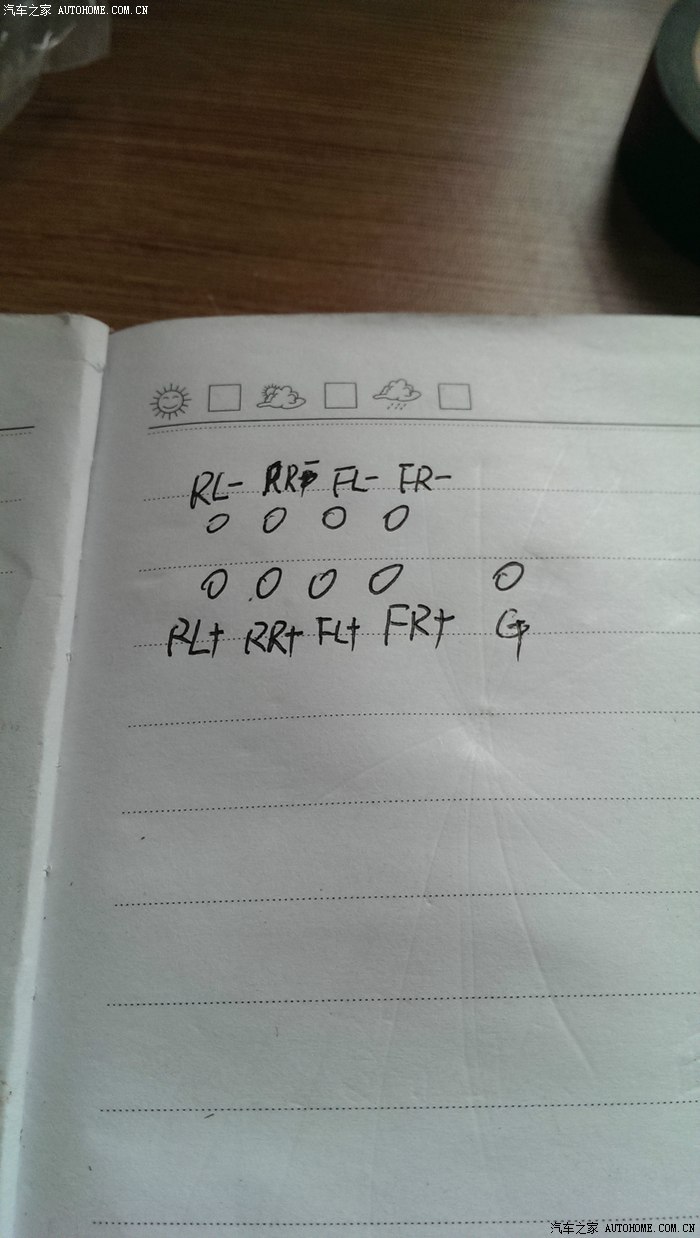 汽车之家 AUTOHOME.COM.CN
RL- RR- FL- FR-
RL+ RR+ FL+ FR+ G
汽车之家 AUTOHOME.COM.CN